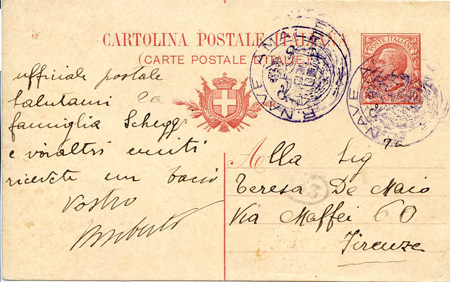 CARTOLINA POSTALE
(CARTE POSTALE D'ITALIE)
R. NAVE
POSTE ITALIANE
R. NAVE
12
ufficiale postale
Salutami la
famiglia Schegg
e voialtri uniti
ricevete un bacio
Vostro
Umberto
Alla Sig ra
Teresa De Maio
Via Maffei 60
Firenze